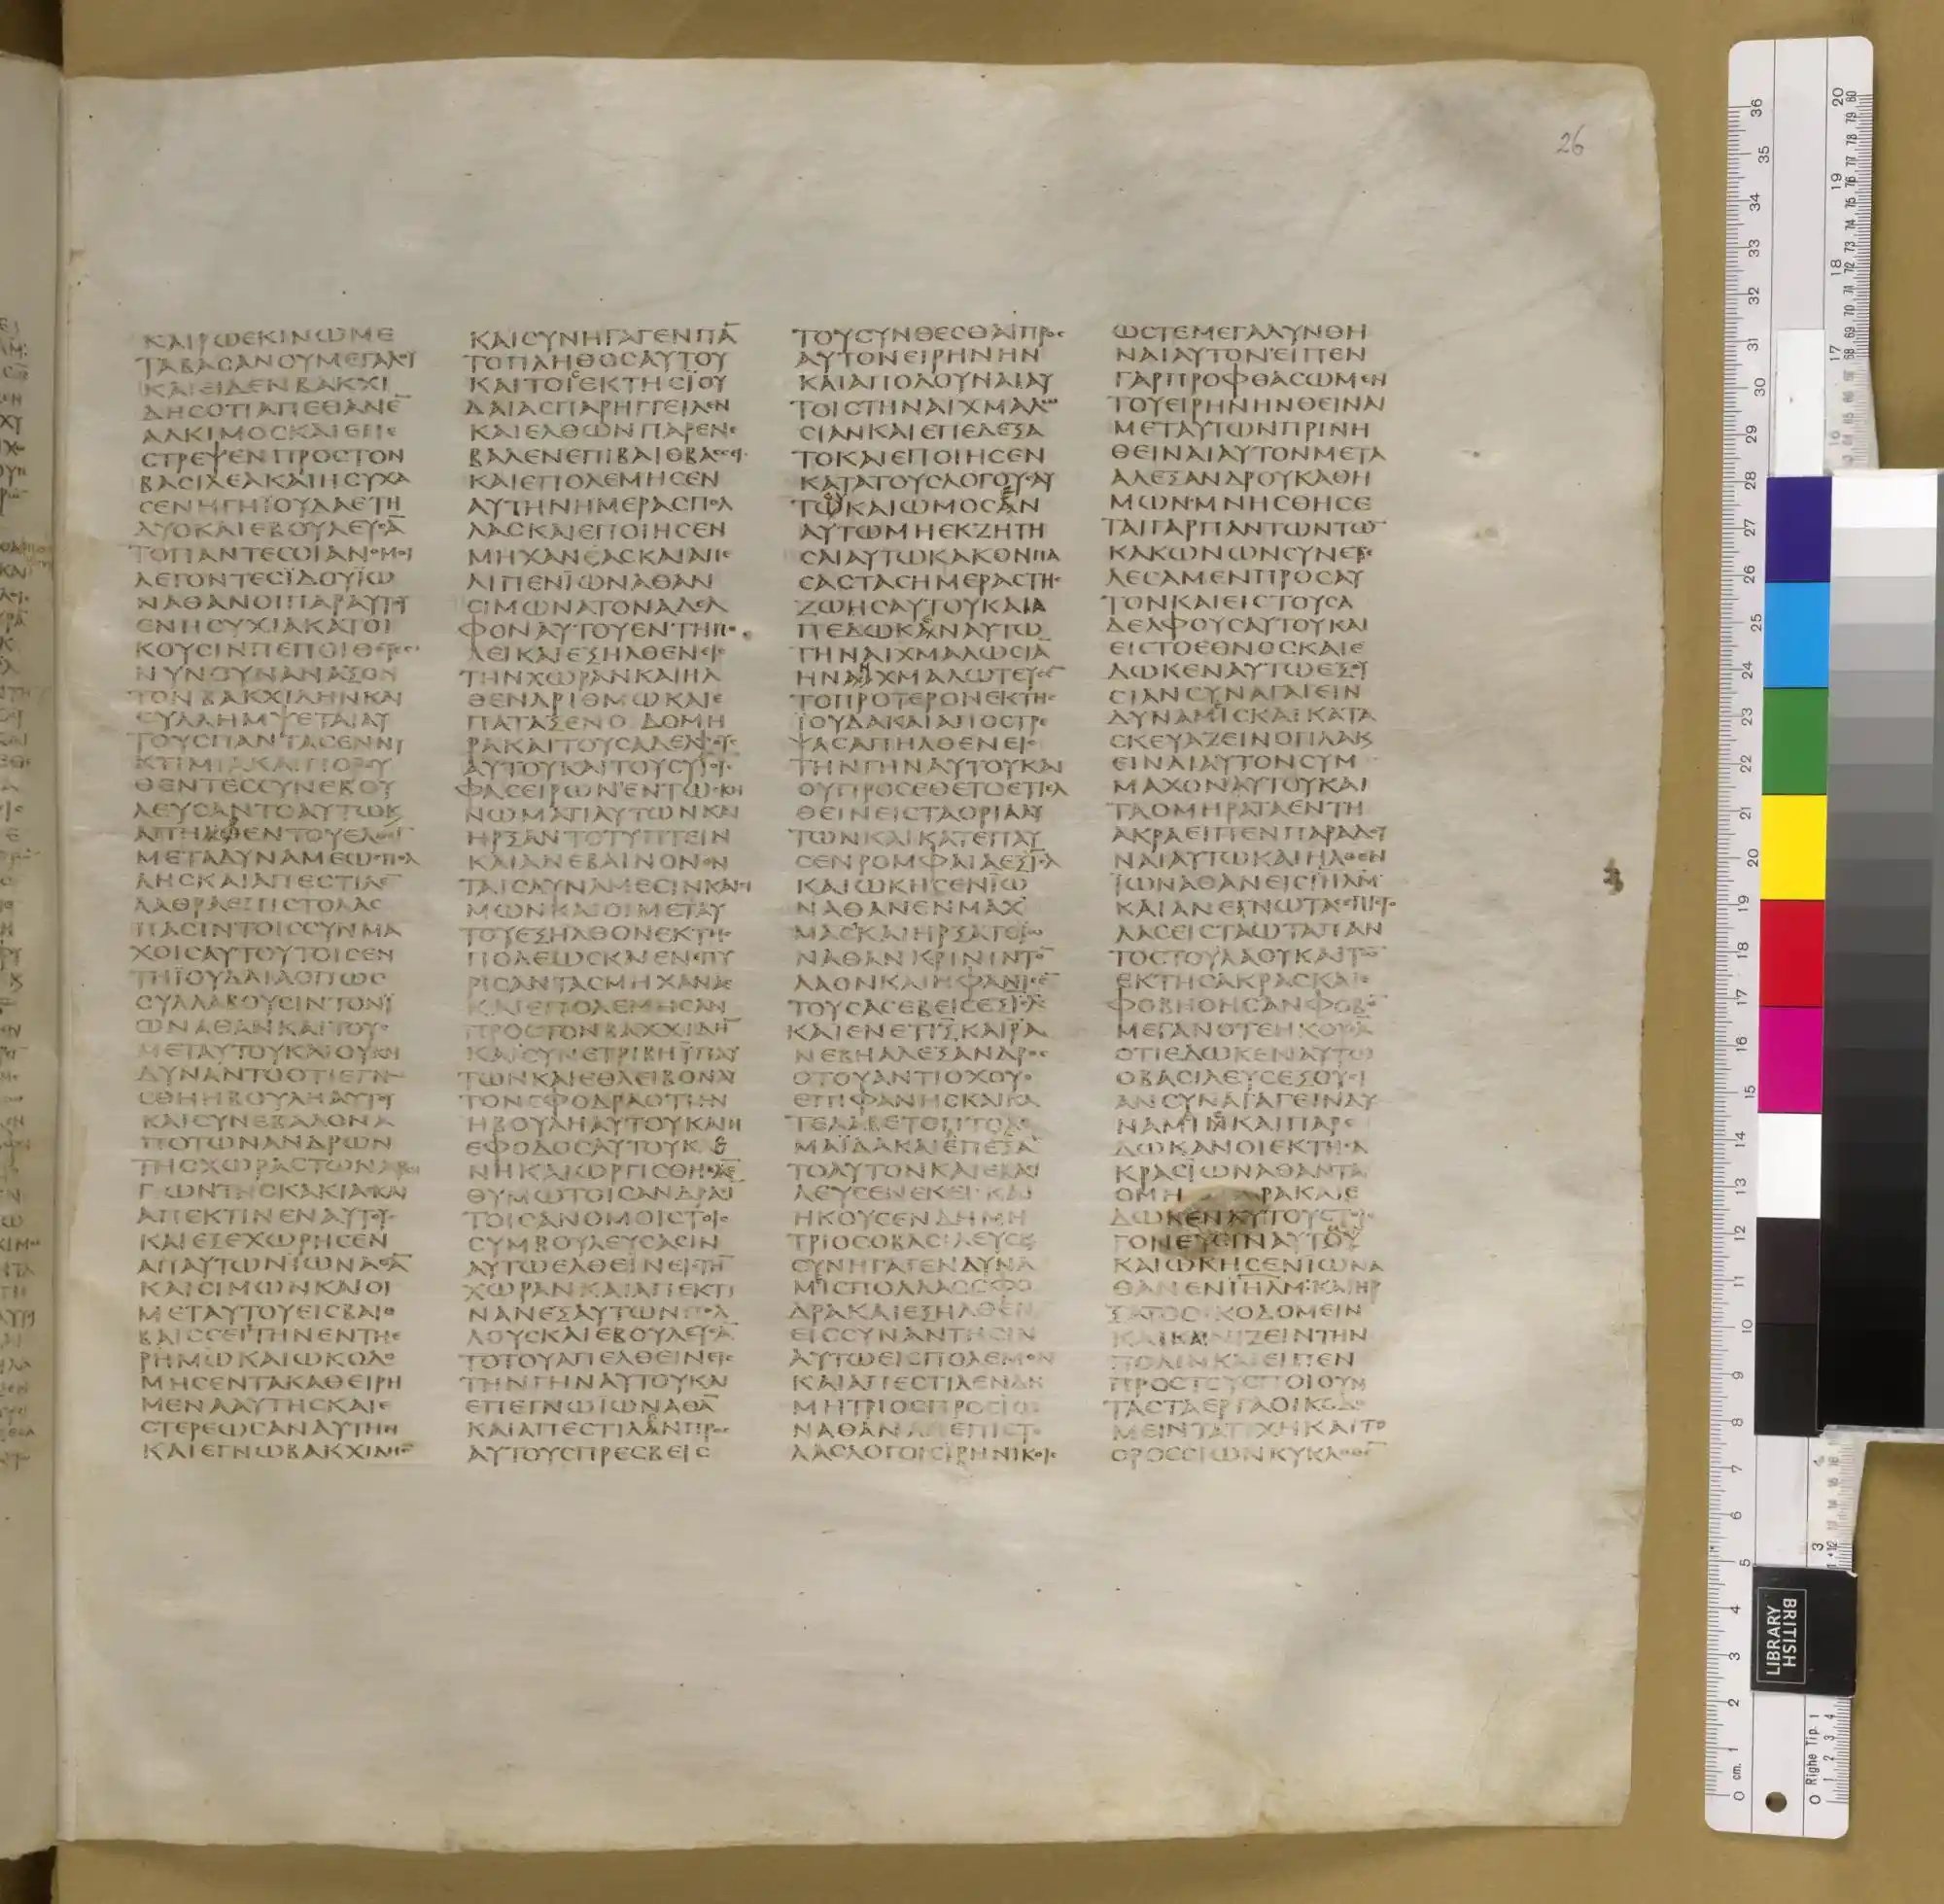 26
ΚΑΙΡΩΕΚΙΝΩΜΕ
ΤΑΒΑCΑΝΟΥΜΕΓΑΛΗ
ΚΑΙΕΙΔΕΝΒΑΚΧΙ
ΔΗCΟΤΙΑΠΕΘΑΝΕ̅
ΑΛΚΙΜΟCΚΑΙΕΠΕ
CΤΡΕΨΕΝΠΡΟCΤΟΝ
ΒΑCΙΛΕΑΚΑΙΗCΥΧΑ
CΕΝΗΓΗΪΟΥΔΑΕΤΗ
ΔΥΟΚΑΙΕΒΟΥΛΕΥCΑ̅
ΤΟΠΑΝΤΕCΟΙΑΝΟΜΟΙ
ΛΕΓΟΝΤΕCΪΔΟΥΪΩ
ΝΑΘΑΝΟΙΠΑΡΑΥΤΟΥ
ΕΝΗCΥΧΙΑΚΑΤΟΙ
ΚΟΥCΙΝΠΕΠΟΙΘΟΤΕC
ΝΥΝΟΥΝΑΝΑΞΟΝ
ΤΟΝΒΑΚΧΙΔΗΝΚΑΙ
CΥΛΛΗΜΨΕΤΑΙΑΥ
ΤΟΥCΠΑΝΤΑCΕΝΝΥ
ΚΤΙΜΙΑΚΑΙΠΟΡΥ
ΘΕΝΤΕCCΥΝΕΒΟΥ
ΛΕΥCΑΝΤΟΑΥΤΩΚ
ΑΠΗΡΘΕΝΤΟΥΕΛΘΕΙ
ΜΕΤΑΔΥΝΑΜΕΩCΠΟΛ
ΛΗCΚΑΙΑΠΕCΤΙΛΕ̅
ΛΑΘΡΑΕΠΙCΤΟΛΑC
ΠΑCΙΝΤΟΙCCΥΝΜΑ
ΧΟΙCΑΥΤΟΥΤΟΙCΕΝ
ΤΗΪΟΥΔΑΙΑΟΠΩC
CΥΛΛΑΒΟΥCΙΝΤΟΝΪ
ΩΝΑΘΑΝΚΑΙΤΟΥC
ΜΕΤΑΥΤΟΥΚΑΙΟΥΚΗ
ΔΥΝΑΝΤΟΟΤΙΕΓΝΩ
CΘΗΗΒΟΥΛΗΑΥΤΟΥ
ΚΑΙCΥΝΕΒΑΛΟΝΑ
ΠΟΤΩΝΑΝΔΡΩΝ
ΤΗCΧΩΡΑCΤΩΝΑΡΧΗ
ΓΩΝΤΗCΚΑΚΙΑCΚΑΙ
ΑΠΕΚΤΙΝΕΝΑΥΤΟΥC
ΚΑΙΕΞΕΧΩΡΗCΕΝ
ΑΠΑΥΤΩΝΪΩΝΑΘΑ̅
ΚΑΙCΙΜΩΝΚΑΙΟΙ
ΜΕΤΑΥΤΟΥΕΙCΒΑΙΘ
ΒΑΙCCΕΙΤΗΝΕΝΤΗΕ
ΡΗΜΩΚΑΙΩΚΟΔΟ
ΜΗCΕΝΤΑΚΑΘΕΙΡΗ
ΜΕΝΑΑΥΤΗCΚΑΙΕ
CΤΕΡΕΩCΑΝΑΥΤΗΝ
ΚΑΙΕΓΝΩΒΑΚΧΙΔΗC
ΚΑΙCΥΝΗΓΑΓΕΝΠΑ̅
ΤΟΠΛΗΘΟCΑΥΤΟΥ
ΚΑΙΤΟΙCΕΚΤΗCΪΟΥ
ΔΑΙΑCΠΑΡΗΓΓΕΙΛΕΝ
ΚΑΙΕΛΘΩΝΠΑΡΕΝΕ
ΒΑΛΕΝΕΠΙΒΑΙΘΒΑCCΙ
ΚΑΙΕΠΟΛΕΜΗCΕΝ
ΑΥΤΗΝΗΜΕΡΑCΠΟΛ
ΛΑCΚΑΙΕΠΟΙΗCΕΝ
ΜΗΧΑΝΕΑCΚΑΙΑΠΕ
ΛΙΠΕΝΪΩΝΑΘΑΝ
CΙΜΩΝΑΤΟΝΑΔΕΛ
ΦΟΝΑΥΤΟΥΕΝΤΗΠΟ
ΛΕΙΚΑΙΕΞΗΛΘΕΝΕΙC
ΤΗΝΧΩΡΑΝΚΑΙΗΛ
ΘΕΝΑΡΙΘΜΩΚΑΙΕ
ΠΑΤΑΞΕΝΟΔΟΜΗ
ΡΑΚΑΙΤΟΥCΑΔΕΛΦΟΥC
ΑΥΤΟΥΚΑΙΤΟΥCΥΪΟΥC
ΦΑCΕΙΡΩΝΕΝΤΩCΚΗ
ΝΩΜΑΤΙΑΥΤΩΝΚΑΙ
ΗΡΞΑΝΤΟΤΥΠΤΕΙΝ
ΚΑΙΑΝΕΒΑΙΝΟΝΕΝ
ΤΑΙCΔΥΝΑΜΕCΙΝΚΑΙCΙ
ΜΩΝΚΑΙΟΙΜΕΤΑΥ
ΤΟΥΕΞΗΛΘΟΝΕΚΤΗC
ΠΟΛΕΩCΚΑΙΕΝΕΠΥ
ΡΙCΑΝΤΑCΜΗΧΑΝΑC
ΚΑΙΕΠΟΛΕΜΗCΑΝ
ΠΡΟCΤΟΝΒΑΧΧΙΔΗ̅
ΚΑΙCΥΝΕΤΡΙΒΗΫΠΑΥ
ΤΩΝΚΑΙΕΘΛΕΙΒΟΝΑΥ
ΤΟΝCΦΟΔΡΑΟΤΙΗΝ
ΗΒΟΥΛΗΑΥΤΟΥΚΑΙΗ
ΕΦΟΔΟCΑΥΤΟΥΚΕ
ΝΗΚΑΙΩΡΓΙCΘΗCΑ̅Ε̅
ΘΥΜΩΤΟΙCΑΝΔΡΑCΙ
ΤΟΙCΑΝΟΜΟΙCΤΟΙC
CΥΜΒΟΥΛΕΥCΑCΙΝ
ΑΥΤΩΕΛΘΕΙΝΕΙCΤΗ̅
ΧΩΡΑΝΚΑΙΑΠΕΚΤΙ
ΝΑΝΕΞΑΥΤΩΝΠΟΛ
ΛΟΥCΚΑΙΕΒΟΥΛΕΥCΑ̅
ΤΟΤΟΥΑΠΕΛΘΕΙΝΕΙC
ΤΗΝΓΗΝΑΥΤΟΥΚΑΙ
ΕΠΕΓΝΩΪΩΝΑΘΑ̅
ΚΑΙΑΠΕCΤΙΛΑΝΠΡΟC
ΑΥΤΟΥCΠΡΕCΒΕΙC
ΤΟΥCΥΝΘΕCΘΑΙΠΡΟC
ΑΥΤΟΝΕΙΡΗΝΗΝ
ΚΑΙΑΠΟΔΟΥΝΑΙΑΥ
ΤΟΙCΤΗΝΑΙΧΜΑΛΩ
CΙΑΝΚΑΙΕΠΕΔΕΞΑ
ΤΟΚΑΙΕΠΟΙΗCΕΝ
ΚΑΤΑΤΟΥCΛΟΓΟΥCΑΥ
ΤΩΚΑΙΩΜΟCΑΝ
ΑΥΤΩΜΗΕΚΖΗΤΗ
CΑΙΑΥΤΩΚΑΚΟΝΠΑ
CΑCΤΑCΗΜΕΡΑCΤΗC
ΖΩΗCΑΥΤΟΥΚΑΙΑ
ΠΕΔΩΚΑΝΑΥΤΩ
ΤΗΝΑΙΧΜΑΛΩCΙΑ̅
ΗΝΑΙΧΜΑΛΩΤΕΥCΕ̅
ΤΟΠΡΟΤΕΡΟΝΕΚΤΗC
ΪΟΥΔΑΚΑΙΑΠΟCΤΡΕ
ΨΑCΑΠΗΛΘΕΝΕΙC
ΤΗΝΓΗΝΑΥΤΟΥΚΑΙ
ΟΥΠΡΟCΕΘΕΤΟΕΤΙΕΛ
ΘΕΙΝΕΙCΤΑΟΡΙΑΑΥ
ΤΩΝΚΑΙΚΑΤΕΠΑΥ
CΕΝΡΟΜΦΑΙΑΕΞΪCΛ
ΚΑΙΩΚΗCΕΝΪΩ
ΝΑΘΑΝΕΝΜΑΧ
ΜΑCΚΑΙΗΡΞΑΤΟΪΩ
ΝΑΘΑΝΚΡΙΝΙΝΤΟ̅
ΛΑΟΝΚΑΙΗΦΑΝΙCΕ̅
ΤΟΥCΑCΕΒΕΙCΕΞΪC̅Λ̅
ΚΑΙΕΝΕΤΙΞΚΑΙΡΑ
ΝΕΒΗΑΛΕΞΑΝΔΡΟC
ΟΤΟΥΑΝΤΙΟΧΟΥΟ
ΕΠΙΦΑΝΗCΚΑΙΚΑ
ΤΕΛΑΒΕΤΟΠΤΟΛΕ
ΜΑΪΔΑΚΑΙΕΠΕΔΕΞΑ̅
ΤΟΑΥΤΟΝΚΑΙΕΒΑCΙ
ΛΕΥCΕΝΕΚΕΙΚΑΙ
ΗΚΟΥCΕΝΔΗΜΗ
ΤΡΙΟCΟΒΑCΙΛΕΥCΚ
CΥΝΗΓΑΓΕΝΔΥΝΑ
ΜΙCΠΟΛΛΑCCΦΟ
ΔΡΑΚΑΙΕΞΗΛΘΕΝ
ΕΙCCΥΝΑΝΤΗCΙΝ
ΑΥΤΩΕΙCΠΟΛΕΜΟΝ
ΚΑΙΑΠΕCΤΙΛΕΝΔΗ
ΜΗΤΡΙΟCΠΡΟCΪΩ
ΝΑΘΑΝΕΠΙCΤΟ
ΛΑCΛΟΓΟΙCΕΙΡΗΝΙΚΟΙC
ΩCΤΕΜΕΓΑΛΥΝΘΗ
ΝΑΙΑΥΤΟΝΕΙΠΕΝ
ΓΑΡΠΡΟΦΘΑCΩΜΕΝ
ΤΟΥΕΙΡΗΝΗΝΘΕΙΝΑΙ
ΜΕΤΑΥΤΩΝΠΡΙΝΗ
ΘΕΙΝΑΙΑΥΤΟΝΜΕΤΑ
ΑΛΕΞΑΝΔΡΟΥΚΑΘΗ
ΜΩΝΜΝΗCΘΗCΕ
ΤΑΙΓΑΡΠΑΝΤΩΝΤΩ̅
ΚΑΚΩΝΩΝCΥΝΕΤΕ
ΛΕCΑΜΕΝΠΡΟCΑΥ
ΤΟΝΚΑΙΕΙCΤΟΥCΑ
ΔΕΛΦΟΥCΑΥΤΟΥΚΑΙ
ΕΙCΤΟΕΘΝΟCΚΑΙΕ
ΔΩΚΕΝΑΥΤΩΕΞΟΥ
CΙΑΝCΥΝΑΓΑΓΕΙΝ
ΔΥΝΑΜΙCΚΑΙΚΑΤΑ
CΚΕΥΑΖΕΙΝΟΠΛΑΚ
ΕΙΝΑΙΑΥΤΟΝCΥΜ
ΜΑΧΟΝΑΥΤΟΥΚΑΙ
ΤΑΟΜΗΡΑΤΑΕΝΤΗ
ΑΚΡΑΕΙΠΕΝΠΑΡΑΔΟΥ
ΝΑΙΑΥΤΩΚΑΙΗΛΘΕΝ
ΪΩΝΑΘΑΝΕΙCΪΗΛΜ
ΚΑΙΑΝΕΓΝΩΤΑCΕΠΙCΤΟ
ΛΑCΕΙCΤΑΩΤΑΠΑΝ
ΤΟCΤΟΥΛΑΟΥΚΑΙΤΩ̅
ΕΚΤΗCΑΚΡΑCΚΑΙΕ
ΦΟΒΗΘΗCΑΝΦΟΒΟ̅
ΜΕΓΑΝΟΤΕΗΚΟΥCΑ̅
ΟΤΙΕΔΩΚΕΝΑΥΤΩ
ΟΒΑCΙΛΕΥCΕΞΟΥCΙ
ΑΝCΥΝΑΓΑΓΕΙΝΔΥ
ΝΑΜΙΝΚΑΙΠΑΡΕ
ΔΩΚΑΝΟΙΕΚΤΗCΑ
ΚΡΑCΪΩΝΑΘΑΝΤΑ
ΟΜΗΡΑΚΑΙΕ
ΔΩΚΕΝΑΥΤΟΥCΤΟΙC
ΓΟΝΕΥCΙΝΑΥΤΟΥ
ΚΑΙΩΚΗCΕΝΪΩΝΑ
ΘΑΝΕΝΪΗΛΜΚΑΙΗΡ
ΞΑΤΟΟΙΚΟΔΟΜΕΙΝ
ΚΑΙΚΑΙΝΙΖΕΙΝΤΗΝ
ΠΟΛΙΝΚΑΙΕΙΠΕΝ
ΠΡΟCΤΟΥCΠΟΙΟΥΝ
ΤΑCΤΑΕΡΓΑΟΙΚΟΔΟ
ΜΕΙΝΤΑΤΙΧΗΚΑΙΤΟ
ΟΡΟCCΙΩΝΚΥΚΛΟΘΕ̅
BRITISH
LIBRARY